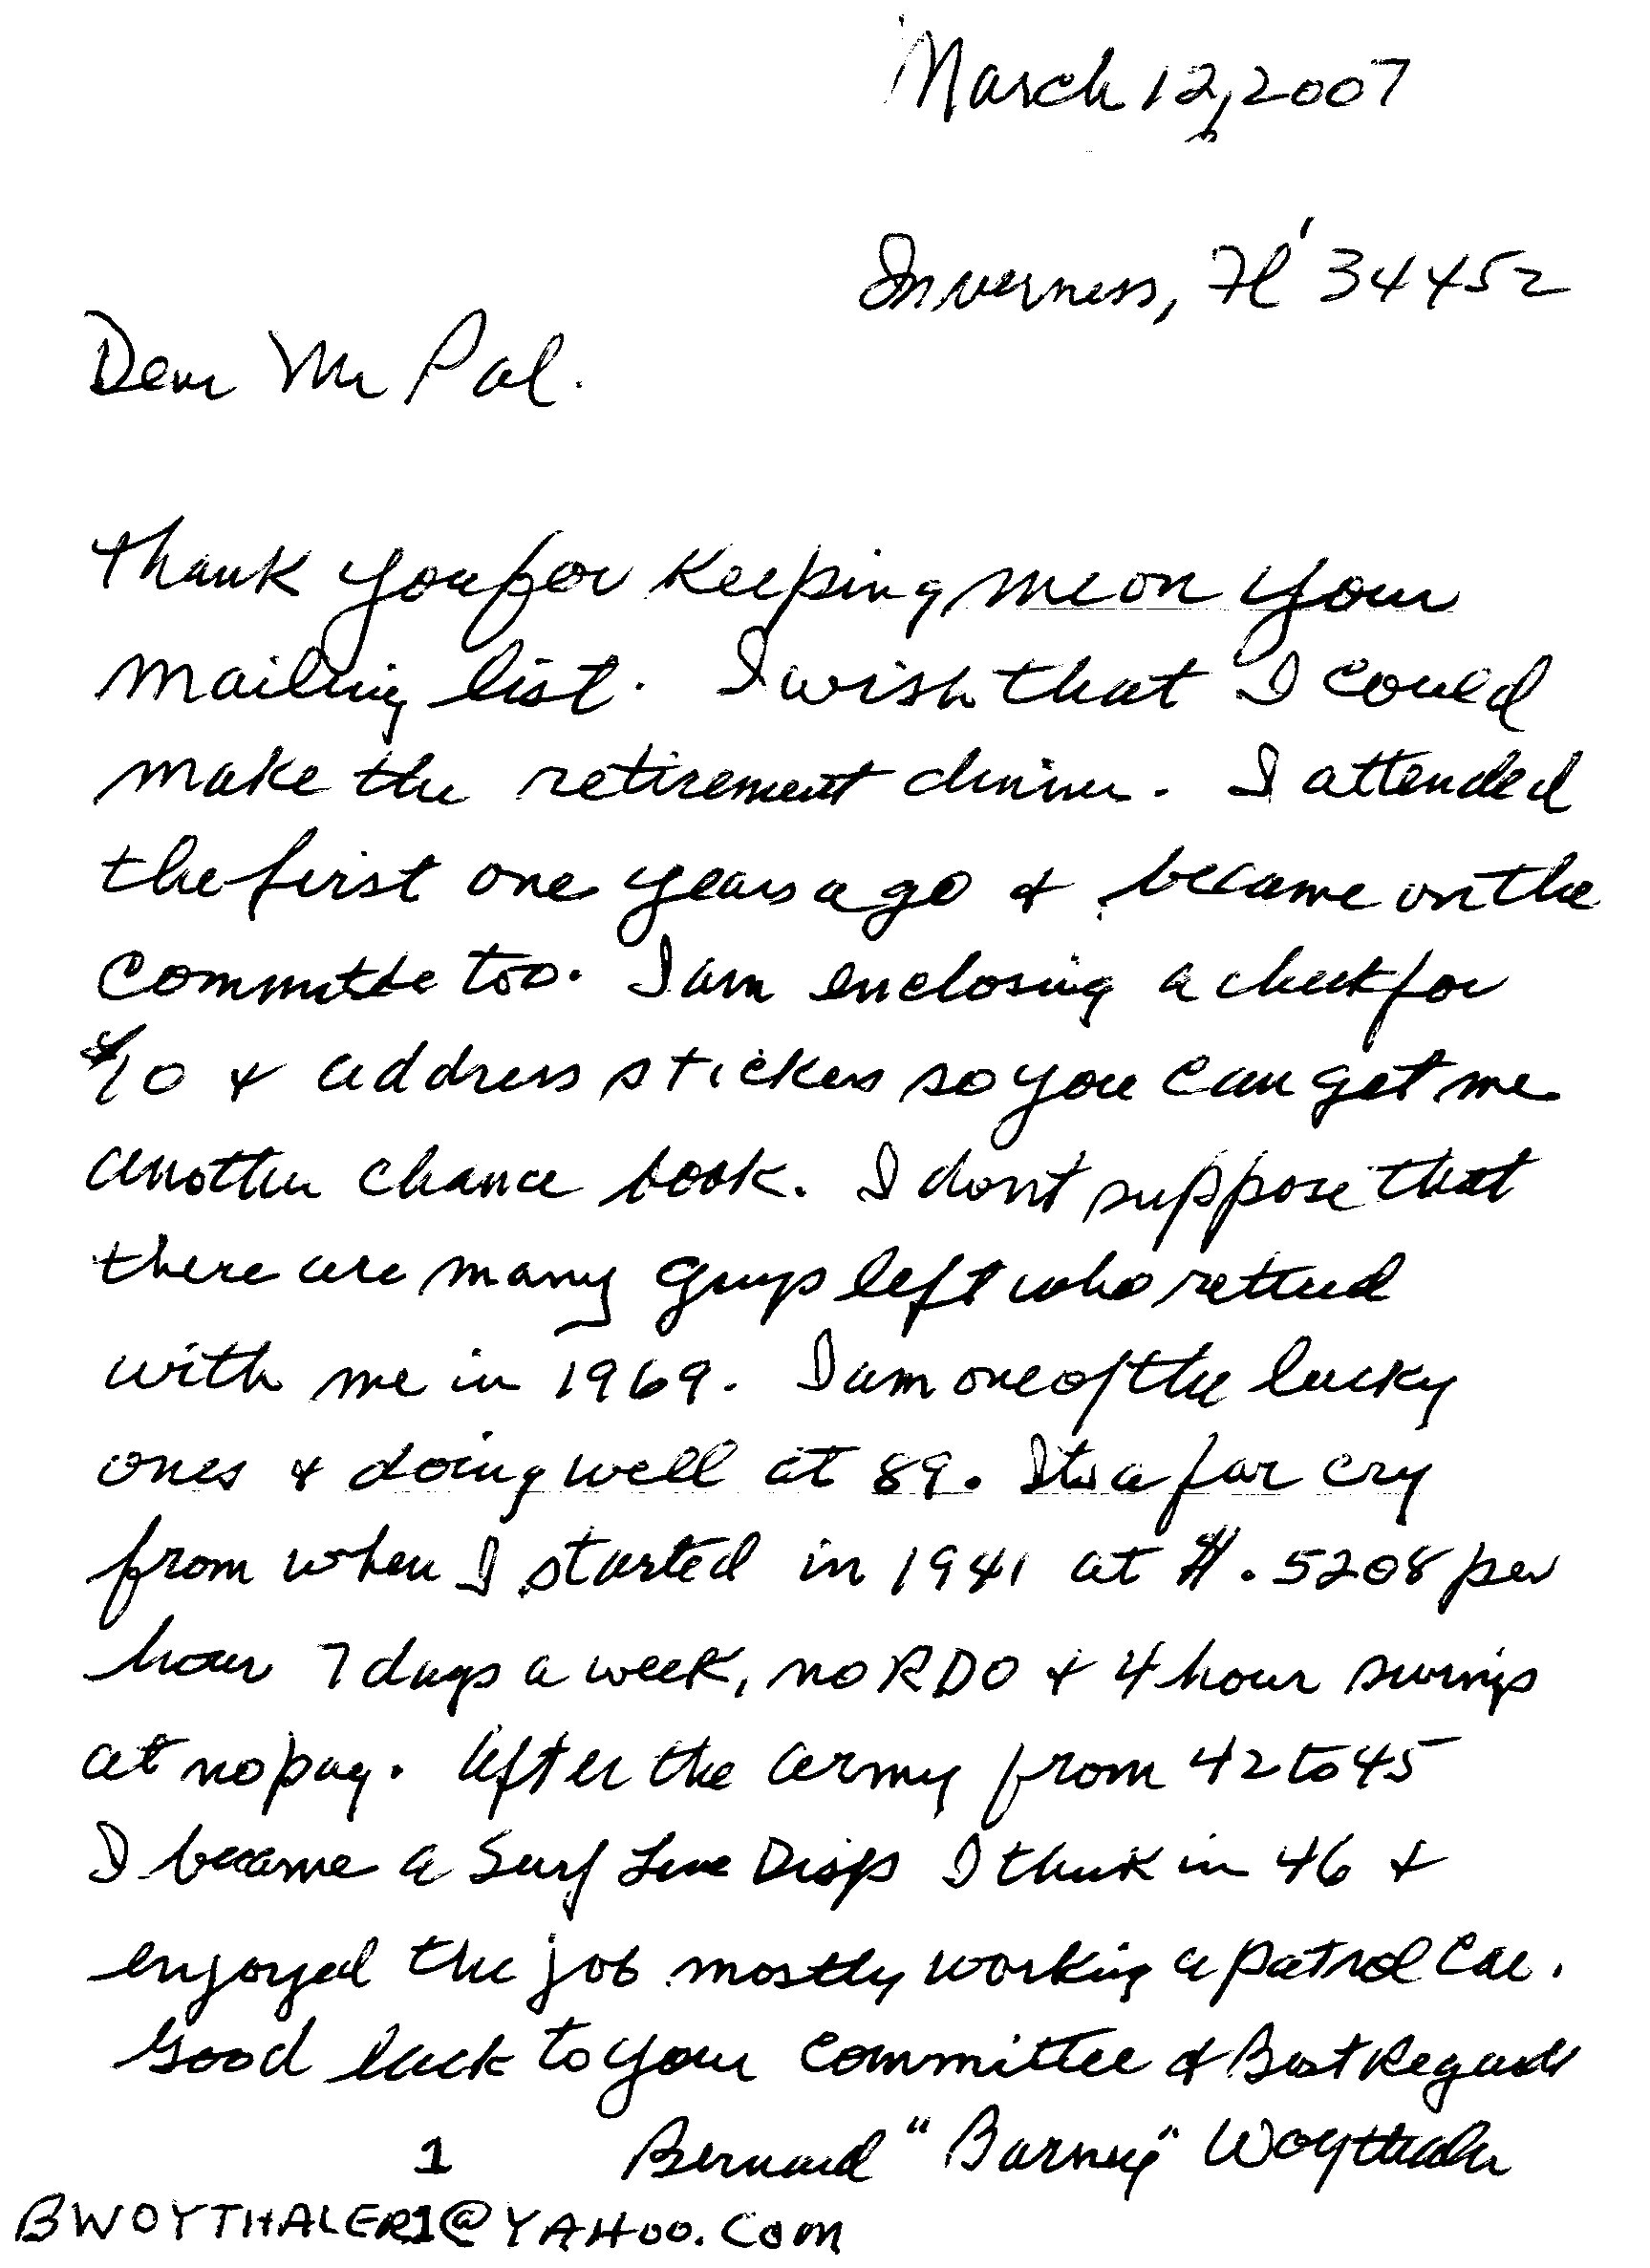 March 12, 2007
Inverness, Fl 34452
Dear Mr Pal.
Thank you for keeping me on your
mailing list. I wish that I could
make the retirement dinner. I attended
the first one years ago & became on the
committee too. I am enclosing a check for
$10 & address stickers so you can get me
another chance book. I don't suppose that
there are many guys left who retired
with me in 1969. I am one of the lucky
ones & doing well at 89. Its a far cry
from when I started in 1941 at $.5208 per
hour 7 days a week, no RDO & 4 hour swings
at no pay. After the army from 42 to 45
I became a Surf Line Disp I think in 46 &
enjoyed the job mostly working a patrol car.
Good luck to your committee & Best Regards
1 Bernard "Barney" Woythaler
BWOYTHALER1@YAHOO.COM